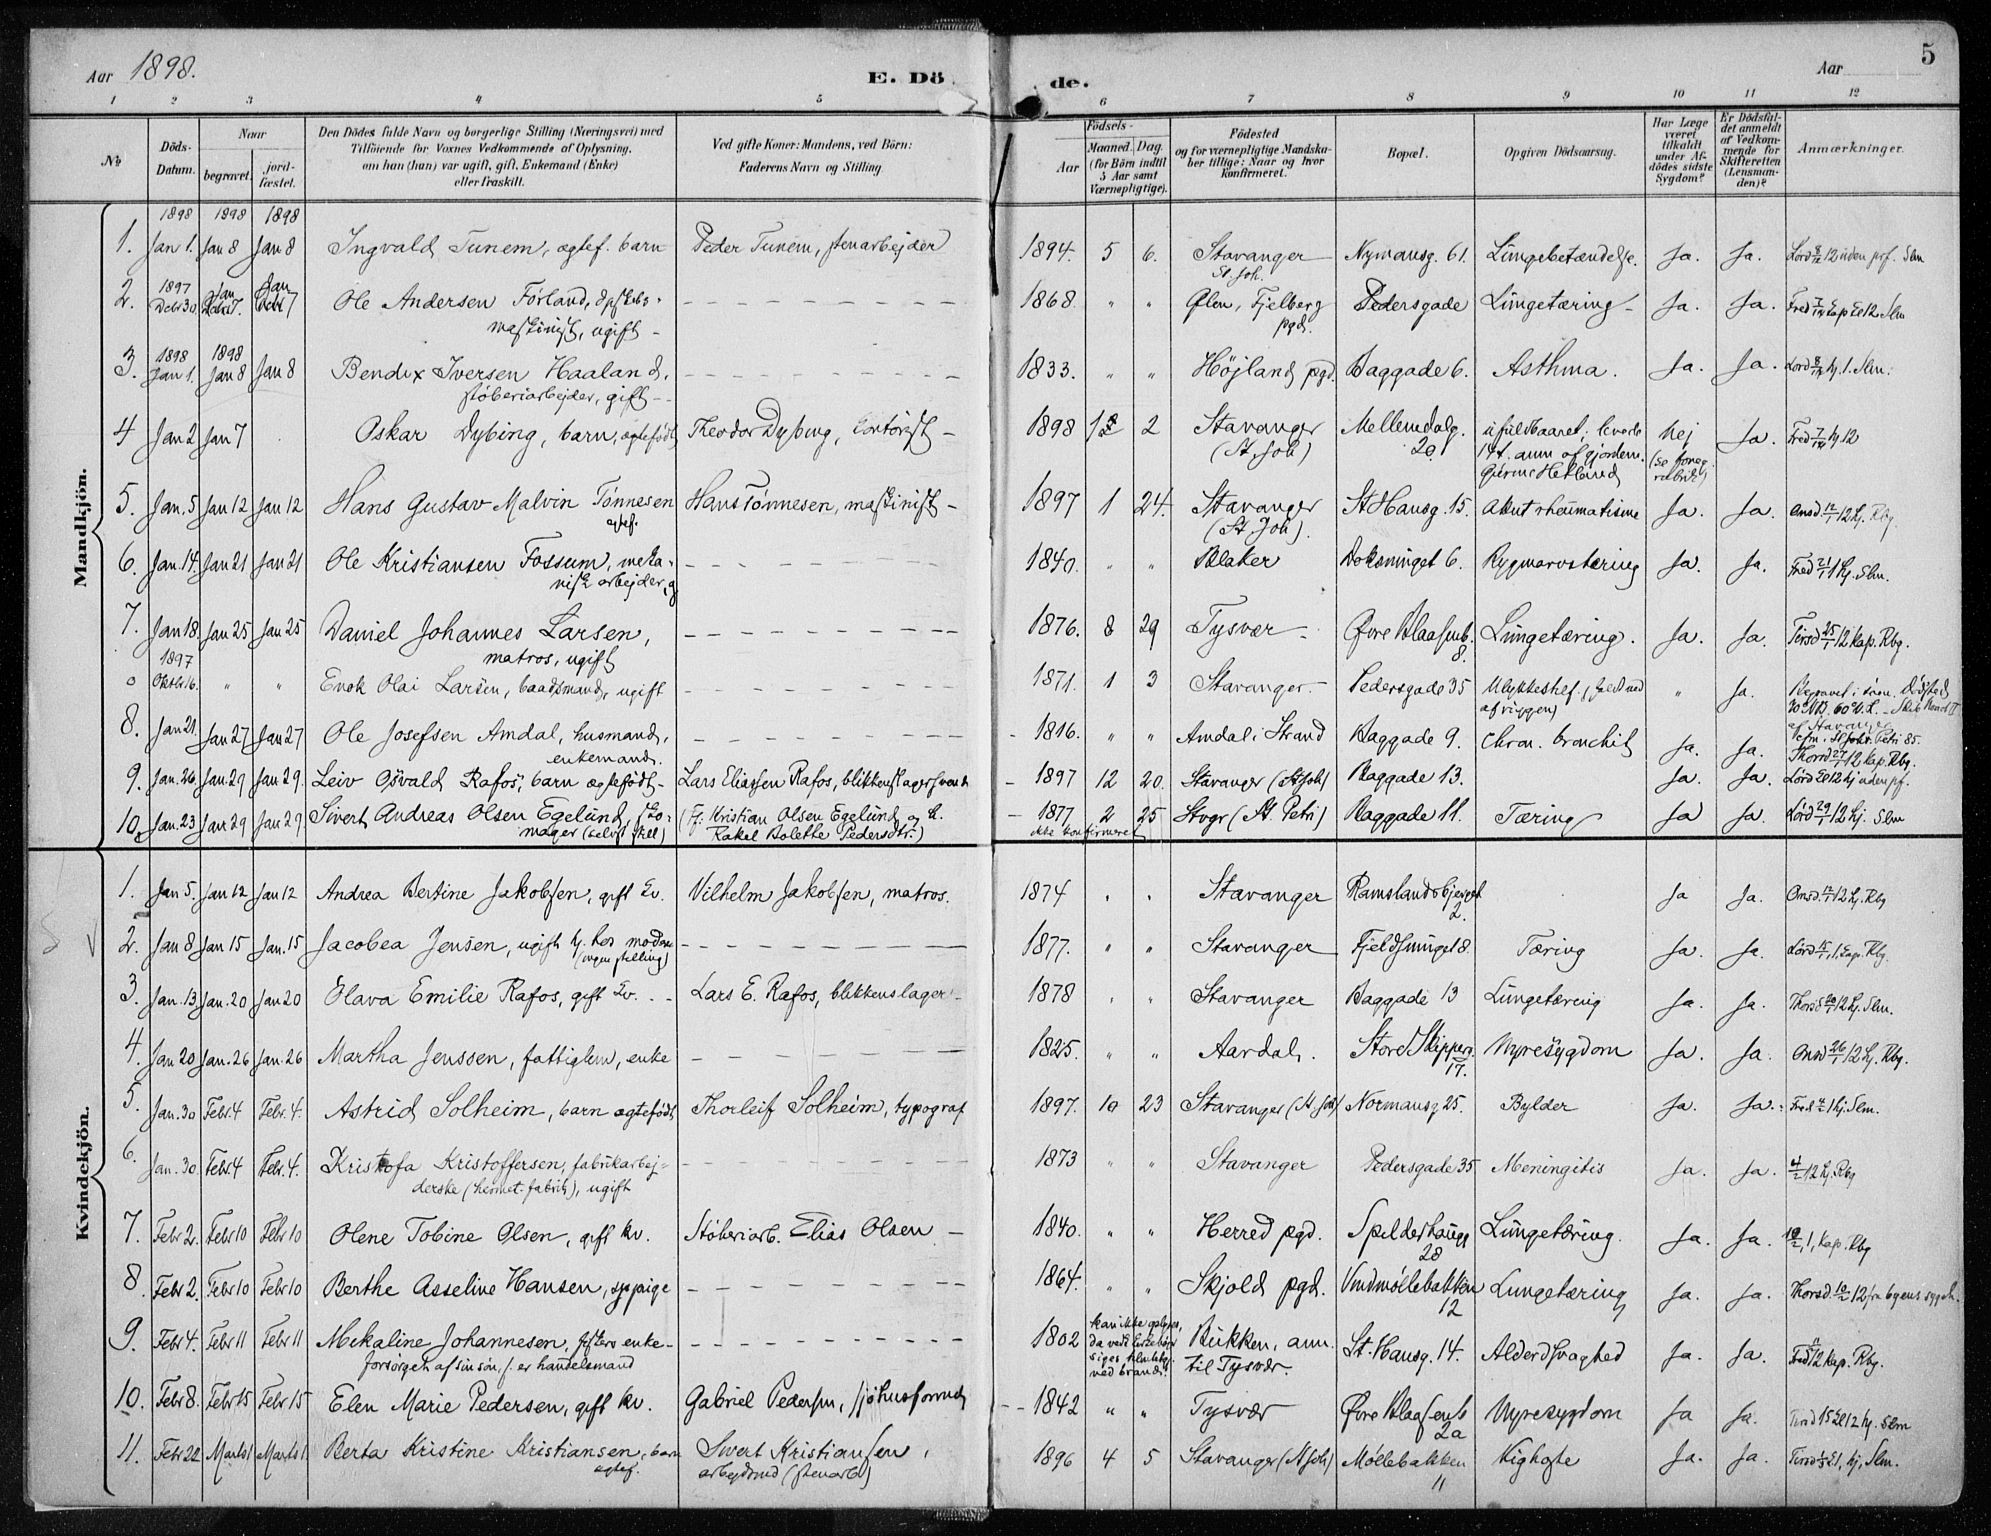 Aar 1898. E. Dö de. Aar 5
1 2 3 4 5 6 7 8 9 10 11 12
No
Döds-Datum.
Naar
begravet.
jord-fæstet.
Den Dödes fulde Navn og borgerlige Stilling (Næringsvei) med
Tilföiende for Voxnes Vedkommende af Oplysning,
om han (hun) var ugift, gift, Enkemand (Enke)
eller fraskilt.
Ved gifte Koner: Mandens, ved Börn:
Faderens Navn og Stilling.
Födsels-
Aar
Maaned. Dag.
(for Börn indtil
5 Aar samt
Værnepligtige).
Födested
og for værnepligtige Mandska-
ber tillige: Naar og hvor
konfirmeret.
Bopæl.
Opgiven Dödsaarsag.
Har Læge
været
tilkaldt
under Af-
dödes sidste
Sygdom?
Er Dödsfal-
det anmeldt
af Vedkom-
mende for
Skifteretten
(Lensman-
den)?
Anmærkninger.
Mandkjön.
1898 1898 1898
1. Jan 1. Jan 8 Jan 8 Ingvald Tunem, ægtef. barn Peder Tunem, stenarbejder 1894. 5 6. Stavanger Nymansg. 61. Lungebetændelse. Ja. Ja. Lörd 8/1 12 uden prf. Slm
St. Joh.
1897 Jan Jan
2. Decbr 30. 7. 7 Ole Andersen Förland, maskinist, ugift 1868. " " Ølen, Fjelberg pgd. Pedersgade Lungetæring Ja. Ja. Fred 7/1 kap kl 12 Slm
1898 1898
3. Jan 1. Jan 8 Jan 8 Bendix Iversen Haaland, 1833. " " Højland pgd. Baggade 6. Asthma. Ja. Ja. Lörd 8/1 kj. 1. Slm.
støberiarbejder, gift
4 Jan 2 Jan 7 Oskar Dybing, barn, ægtefødt Theodor Dybing, kontorist 1898 1 2 Stavanger Mellemdalg. ufuldbaaret, levede Nej Ja. Fred 7/1 kj 12
(St. Joh) 20 1 t. anm af gjordem.
Gurine Hetland
5. Jan. 5 Jan 12 Jan 12 Hans Gustav Malvin Tønnesen Hans Tønnesen, maskinist 1897 1 24. Stavanger St Hansg. 15. Akut rheumatisme Ja. Ja. Onsd. 12/1 12 kj. Rbg.
ægtef. (St Joh).
6. Jan. 14. Jan 21 Jan 21 Ole Kristiansen Fossum, meka- 1840. " " Blaker Doksmuget 6. Rygmarvstæring Ja. Ja. Fred 21/1 1 kj. Slm.
nisk arbejder, g
7. Jan 18. Jan 25 Jan 25 Daniel Johannes Larsen, 1876. 8 29 Tysvær Øvre Blaasenb. 8. Lungetæring. Ja. Ja. Tirsd 25/1 12 kap. Rbg.
matros, ugift
1897
0 Oktbr 16. " " Enok Olai Larsen, baadsmand, ugift 1871. 1 3 Stavanger. Pedersgade 35 Ulykkestilf., (faldt ned " Ja. Begravet i söen. Dödssted
af riggen) 30° NB. 60° V. L.
af Stavanger
8. Jan 21. Jan 27 Jan 27 Ole Josefsen Amdal, husmand, 1816. " " Amdal i Strand Baggade 9. Chron. bronchit Ja. Ja. Thorsd 27/1 12 kap. Rbg.
enkemand.
9. Jan. 26 Jan. 29 Jan 29. Leiv Osvald Rafos, barn ægtefødt Lars Eliassen Rafos, blikkenslagersvend 1897 12 20. Stavanger (St Joh) Baggade 13. Ja. Ja. Lörd 12 kj uden prf.
10. Jan. 23 Jan 29 Jan 29. Sivert Andreas Olsen Egelund, sko- (Fr. Kristian Olsen Egelund og h. 1877 2 25 Stvgr (St. Petri) Baggade 11. Tæring Ja Ja. Lörd 29/1 12 kj. Slm
mager (selvst. still) Rakel Bolette Pedersdtr.) ikke konfirmeret
Kvindekjön.
1. Jan 5. Jan 12 Jan 12 Andrea Bertine Jakobsen, gift kv. Vilhelm Jakobsen, matros. 1874 " " Stavanger Ramslandsbjerget 2. Ja Ja. Onsd. 12/1 12 kj. Rbg
2. Jan 8 Jan 15 Jan. 15 Jacobea Jensen, ugift hj. hos moderen 1877. " " Stavanger Fjeldsmuget 8. Tæring Ja. Ja. Lörd 15/1, 1, kap. Rbg.
(ingen stilling)
3. Jan. 13 Jan. 20 Jan 20 Olava Emilie Rafos, gift kv. Lars E. Rafos, blikkenslager 1878 " " Stavanger Baggade 13 Lungetæring Ja. Ja. Thorsd 20/1 12 kj. Slm.
4. Jan 20 Jan. 26 Jan. 26 Martha Jenssen, fattiglem, enke 1825. " " Aardal. Store Skipperg. 17. Nyresygdom Ja. Ja. Onsd 26/1 12 kj. Rbg.
5. Jan. 30 Febr. 4 Febr. 4. Astrid Solheim, barn ægtefødt Thorleif Solheim, typograf 1897. 10 23 Stavanger (St. Joh) Normansg 25. Bylder Ja. Ja. Fred 4/2 1 kj. Slm.
6. Jan. 30. Febr. 4 Febr. 4. Kristofa Kristoffersen, fabrikarbej- 1873 " " Stavanger Pedersgade 35 Meningitis Ja. Ja. 4/2 12 kj. Rbg
derske (hermet. fabrik), ugift
7. Febr 2. Febr 10 Febr 10 Olene Tobine Olsen, gift kv. Støberiarb. Elias Olsen 1840. " " Herred pgd. Spilderhaugg 28 Lungetæring. Ja. Ja. 10/2, 1, kap. Rbg
8. Febr 2. Febr 10 Febr 10 Berthe Asseline Hansen, sypige 1864. " " Skjold pgd. Vindmøllebakken 12 Lungetæring Ja. Ja. Thorsd. 10/2 12 fra byens sygeh.
9. Febr 4. Febr 11 Febr 11 Mekaline Johannesen, fiskers enke 1802 kan ikke oplyses, Bukken, ann. St. Hansg. 14. Alderdsvaghed Ja. Ja. Fred 12 kap. Rbg.
forsörget af sin sön, s. er handelsmand da ved brand. til Tysvær.
10. Febr 8. Febr 15 Febr 15 Elen Marie Pedersen, gift kv. Gabriel Pedersen, sjöhusformd 1842 " " Tysvær Øvre Blaasenb 2a Nyresygdom Ja Ja. Tirsd 15 kl 12 kj. Slm
11. Febr 22 Marts 1 Marts 1. Berta Kristine Kristiansen, barn Sivert Kristiansen, 1896 4 5 Stavanger (St Joh) Møllebakken 11 Kighoste Ja. Ja. Tirsd 1/3 kl 1, kj, Slm.
ægtef. arbejdsmd (stenarb)